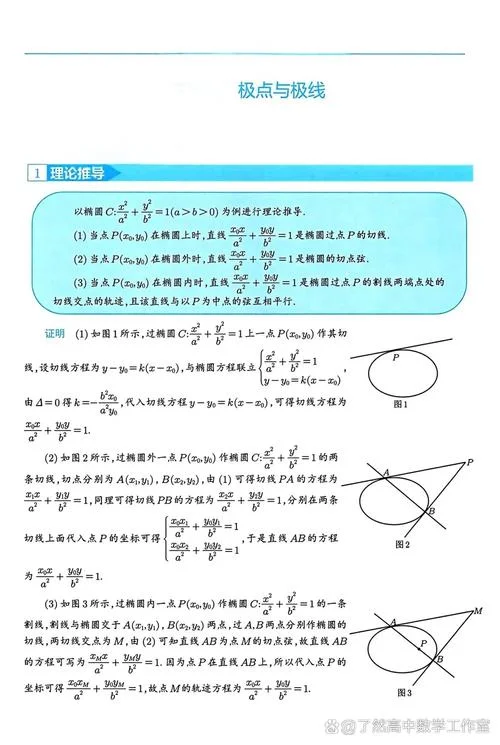 极点与极线
1 理论推导
以椭圆 C: x²/a² + y²/b² = 1(a>b>0) 为例进行理论推导.
(1) 当点 P(x₀,y₀) 在椭圆上时,直线 x₀x/a² + y₀y/b² = 1 是椭圆过点 P 的切线.
(2) 当点 P(x₀,y₀) 在椭圆外时,直线 x₀x/a² + y₀y/b² = 1 是椭圆的切点弦.
(3) 当点 P(x₀,y₀) 在椭圆内时,直线 x₀x/a² + y₀y/b² = 1 是椭圆过点 P 的割线两端点处的
切线交点的轨迹,且该直线与以 P 为中点的弦互相平行.
证明 (1) 如图 1 所示,过椭圆 C: x²/a² + y²/b² = 1 上一点 P(x₀,y₀) 作其切
线,设切线方程为 y−y₀=k(x−x₀),与椭圆方程联立 { x²/a² + y²/b² = 1, y−y₀=k(x−x₀) ,
由 Δ=0 得 k=−b²x₀/a²y₀,代入切线方程 y−y₀=k(x−x₀),可得切线方程为
x₀x/a² + y₀y/b² = 1.
P
图1
(2) 如图 2 所示,过椭圆外一点 P(x₀,y₀) 作椭圆 C: x²/a² + y²/b² = 1 的两
条切线,切点分别为 A(x₁,y₁), B(x₂,y₂),由 (1) 可得切线 PA 的方程为
x₁x/a² + y₁y/b² = 1,同理可得切线 PB 的方程为 x₂x/a² + y₂y/b² = 1,分别在两条
切线上面代入点 P 的坐标可得 { x₀x₁/a² + y₀y₁/b² = 1, x₀x₂/a² + y₀y₂/b² = 1 ,于是直线 AB 的方程
为 x₀x/a² + y₀y/b² = 1.
A
P
B
图2
(3) 如图 3 所示,过椭圆内一点 P(x₀,y₀) 作椭圆 C: x²/a² + y²/b² = 1 的一条
割线,割线与椭圆交于 A(x₁,y₁), B(x₂,y₂) 两点,过 A,B 两点分别作椭圆的
切线,两切线交点为 M,由 (2) 可知直线 AB 为点 M 的切点弦,故直线 AB
的方程可写为 x_Mx/a² + y_My/b² = 1. 因为点 P 在直线 AB 上,所以代入点 P 的
坐标可得 x₀x_M/a² + y₀y_M/b² = 1,故点 M 的轨迹方程为 x₀x/a² + y₀y/b² = 1.
A
M
P
B
图3
@了然高中数学工作室